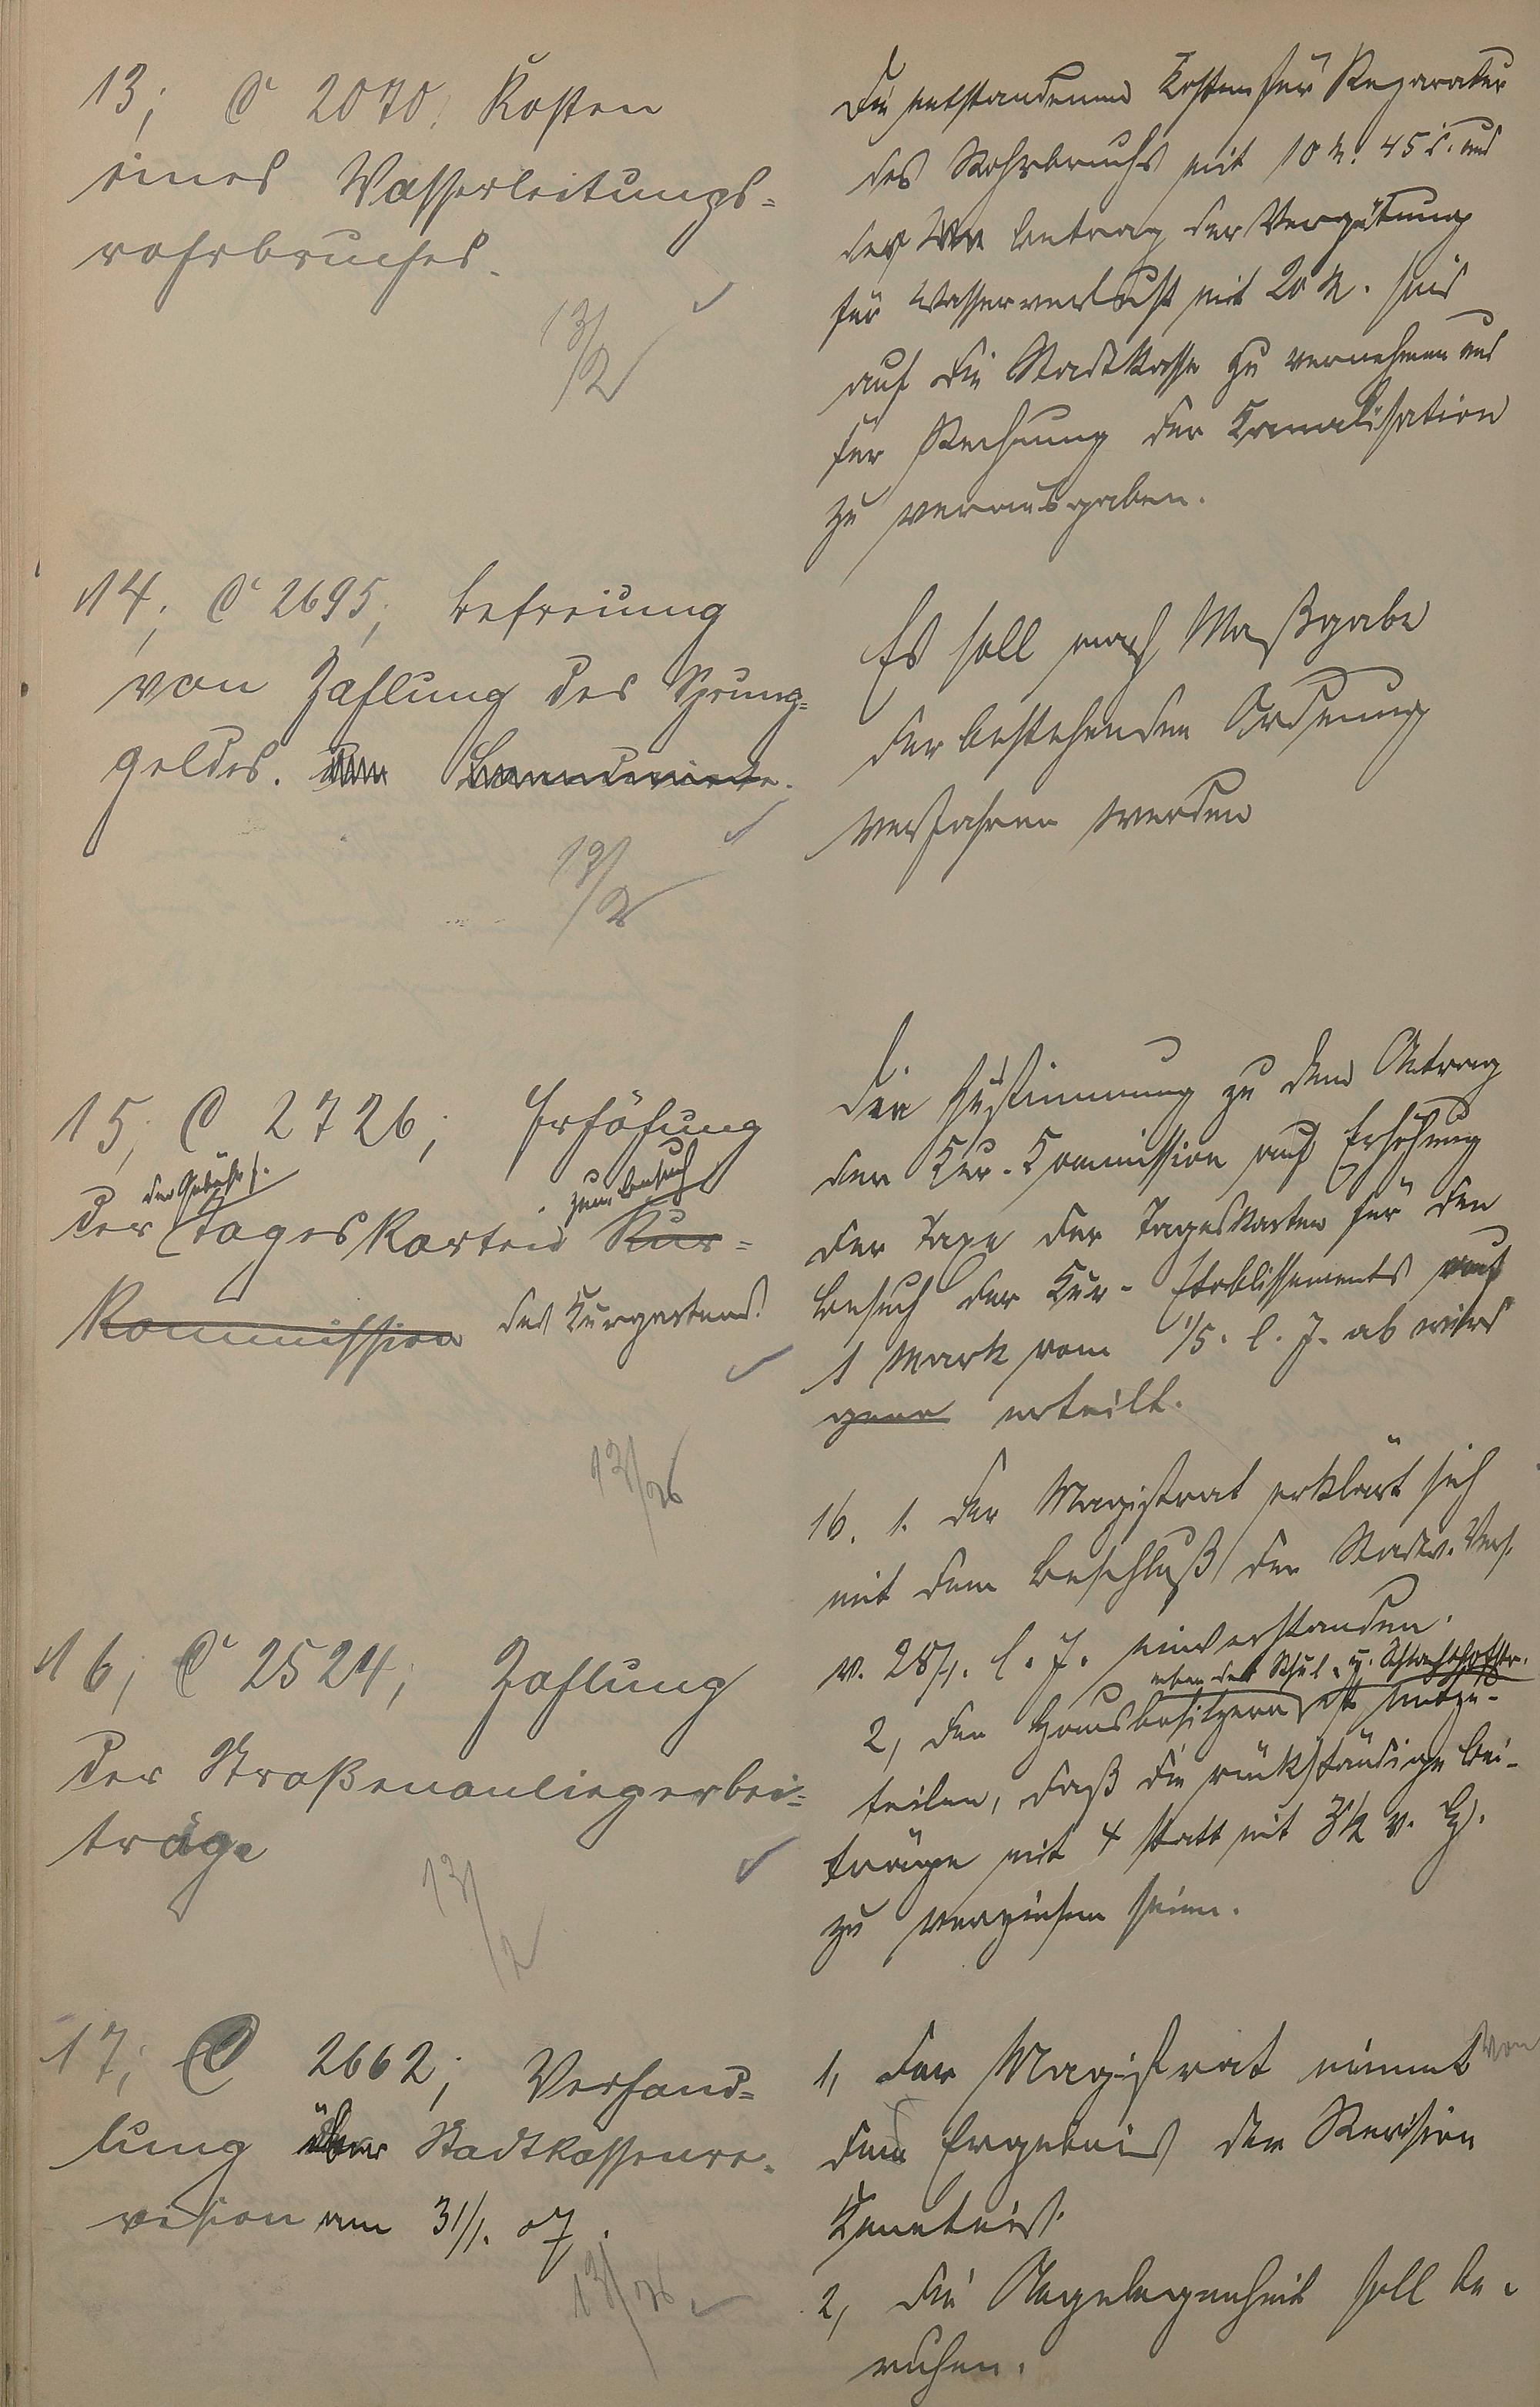 13; C 2070; Kosten
eines Wasserleitungs=
rohrbruches.
13/2
Die entstandenen Kosten für Reparatur
des Rohrbruchs mit 10 M. 45 d. und
der Betrag der Vergütung
für Wasserverlust mit 20 M. sind
auf die Stadtkasse zu vernehmen und
für Rechnung der Kanalisation
zu verausgaben.
14; C 2695; Befreiung
von Zahlung des Sprung=
geldes.
13/2
Es soll nach Maßgabe
der bestehenden Ordnung
verfahren werden
15; C 2726; Erhöhung
der Gebühr f. zum Besuch
der Tageskarten Kur=
Kommission des Kurgartens.
13/2 06
Die Zustimmung zu dem Antrag
der Kur-Kommission auf Erhöhung
der Taxe der Tageskarten für den
Besuch der Kur-Etablissements auf
1 Mark vom 1/5. l. J. ab wird
erteilt.
16; C 2524; Zahlung
der Straßenanliegerbei=
träge
13/2
16. 1. Der Magistrat erklärt sich
mit dem Beschluß der Stadtv. Vers.
v. 28/1. l. J. einverstanden.
neben der Schul- u. Schlachthofstr.
2, Den Hausbesitzern ist mitzu-
teilen, daß die rückständige Bei-
träge mit 4 statt mit 3 1/2 v. H.
zu verzinsen seien.
17; C 2662; Verhand=
lung über Stadtkassenre=
vision am 31/1. 07.
13/2
1, Der Magistrat nimmt von
dem Ergebnis der Revision
Kenntnis.
2, Die Angelegenheit soll be-
ruhen.